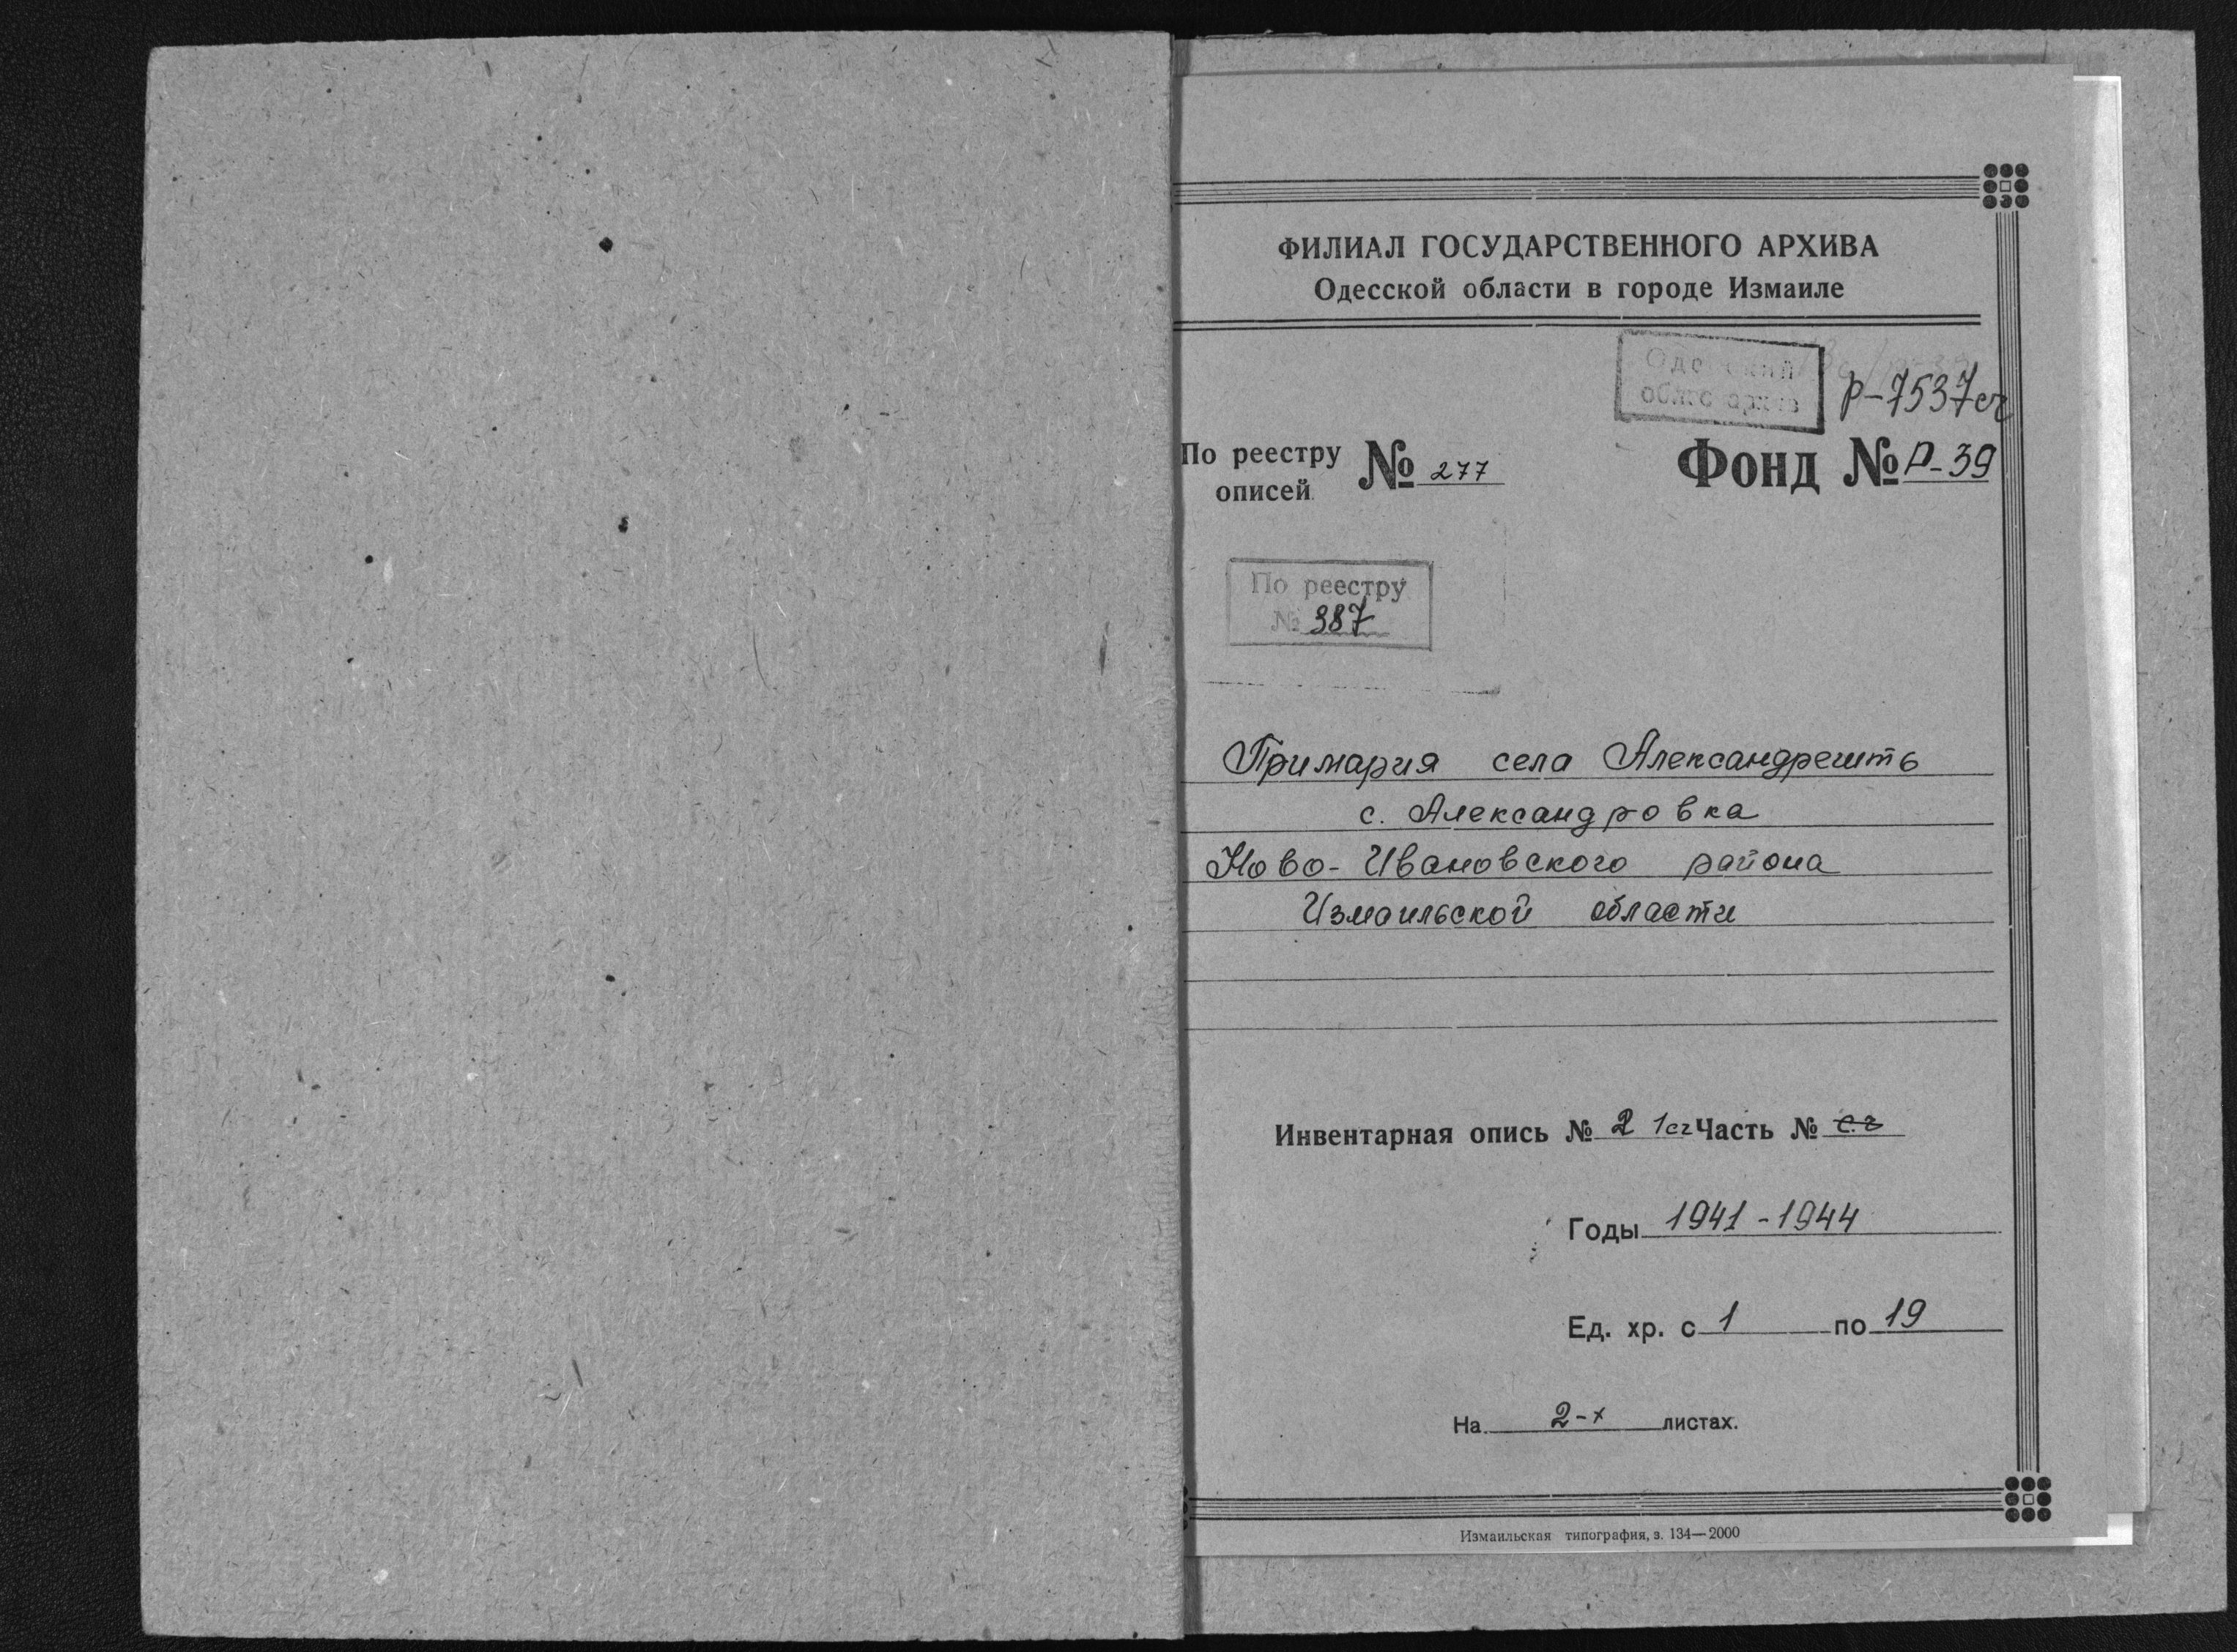 ФИЛИАЛ ГОСУДАРСТВЕННОГО АРХИВА
Одесской области в городе Измаиле
Одесский
облгосархив
Р-7537сч
По реестру
описей
№ 277
Фонд № Р-39
По реестру
№ 387
Примария села Александрешть
с. Александровка
Ново-Ивановского района
Измаильской области
Инвентарная опись № 2 1сч Часть №
Годы 1941-1944
Ед. хр. с 1 по 19
На 2-х листах.
Измаильская типография, з. 134—2000